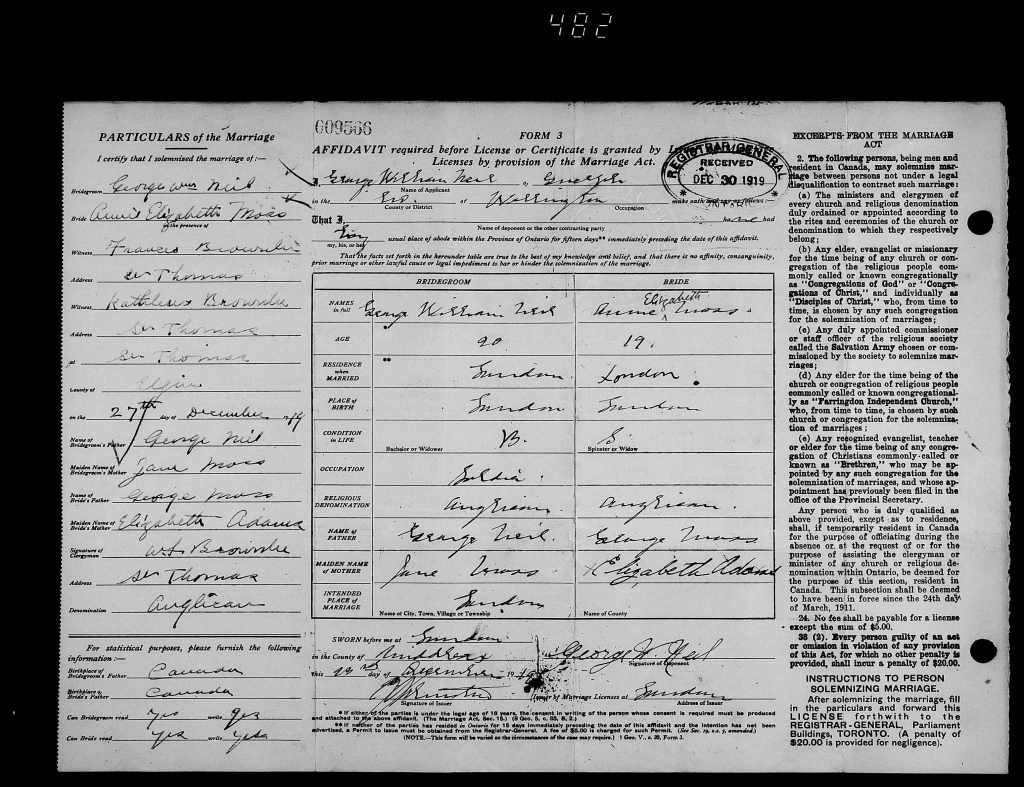 482
PARTICULARS of the Marriage
I certify that I solemnised the marriage of:—
Bridegroom George Neil
Bride Annie Elizabeth Moss
in the presence of
Witness Francis Brownlee
Address St Thomas
Witness Kathleen Brownlee
Address St Thomas
at St Thomas
County of Elgin
on the 27th day of December 1919
Name of Bridegroom's Father George Neil
Maiden Name of Bridegroom's Mother Jane Moss
Name of Bride's Father George Moss
Maiden Name of Bride's Mother Elizabeth Adams
Signature of Clergyman Brownlee
Address St Thomas
Denomination Anglican
For statistical purposes, please furnish the following
information:—
Birthplace of Bridegroom's Father Canada
Birthplace of Bride's Father Canada
Can Bridegroom read Yes write Yes
Can Bride read Yes write Yes
609566
FORM 3
AFFIDAVIT required before License or Certificate is granted by
Licenses by provision of the Marriage Act.
REGISTRAR GENERAL
RECEIVED
DEC 30 1919
I, George William Neil
Name of Applicant
in the of Wellington make oath and say as follows:—
County or District Occupation
That I had
Name of deponent or the other contracting party
my, his, or her usual place of abode within the Province of Ontario for fifteen days** immediately preceding the date of this affidavit.
That the facts set forth in the hereunder table are true to the best of my knowledge and belief, and that there is no affinity, consanguinity,
prior marriage or other lawful cause or legal impediment to bar or hinder the solemnization of the marriage.
BRIDEGROOM BRIDE
NAMES in full George William Neil Annie Elizabeth Moss
AGE 20 19.
RESIDENCE when MARRIED ** London London
PLACE OF BIRTH London London
CONDITION in LIFE B. S
Bachelor or Widower Spinster or Widow
OCCUPATION Soldier
RELIGIOUS DENOMINATION Anglican Anglican
NAME OF FATHER George Neil George Moss
MAIDEN NAME OF MOTHER Jane Moss Elizabeth Adams
INTENDED PLACE OF MARRIAGE London
Name of City, Town, Village or Township Name of County
SWORN before me at London
in the County of Middlesex George W Neil
Signature of Deponent
this day of December 1919
Issuer of Marriage Licenses at London
Signature of Issuer Address of Issuer
* If either of the parties is under the legal age of 18 years, the consent in writing of the person whose consent is required must be produced
and attached to the above affidavit. (The Marriage Act, Sec. 15.)
** If neither of the parties has resided in Ontario for 15 days immediately preceding the date of this affidavit and the intention has not been
advertised, a Permit to Issue must be obtained from the Registrar-General. A fee of $5.00 is charged for such Permit.
(NOTE.—This form will be varied as the circumstances of the case may require.)
EXCERPTS FROM THE MARRIAGE
ACT
2. The following persons, being men and
resident in Canada, may solemnize mar-
riage between persons not under a legal
disqualification to contract such marriage:
(a) The ministers and clergymen of
every church and religious denomination
duly ordained or appointed according to
the rites and ceremonies of the church or
denomination to which they respectively
belong;
(b) Any elder, evangelist or missionary
for the time being of any church or con-
gregation of the religious people com-
monly called or known congregationally
as "Congregations of God" or "Congre-
gations of Christ," and individually as
"Disciples of Christ," who, from time to
time, is chosen by any such congregation
for the solemnization of marriages;
(c) Any duly appointed commissioner
or staff officer of the religious society
called the Salvation Army chosen or com-
missioned by the society to solemnize mar-
riages;
(d) Any elder for the time being of the
church or congregation of religious people
commonly called or known congregational-
ly as "Farringdon Independent Church,"
who, from time to time, is chosen by such
church or congregation for the solemniza-
tion of marriages;
(e) Any recognized evangelist, teacher
or elder for the time being of any congre-
gation of Christians commonly called or
known as "Brethren," who may be ap-
pointed by any such congregation for the
solemnization of marriages, and whose ap-
pointment has previously been filed in the
office of the Provincial Secretary.
Any person who is duly qualified as
above provided, except as to residence,
shall, if temporarily resident in Canada
for the purpose of officiating during the
absence or at the request of or for the
purpose of assisting the clergyman or
minister of any church or religious de-
nomination within Ontario, be deemed for
the purpose of this section, resident in
Canada. This subsection shall be deemed
to have been in force since the 24th day
of March, 1911.
24. No fee shall be payable for a license
except the sum of $5.00.
38 (2). Every person guilty of an act
or omission in violation of any provision
of this Act, for which no other penalty is
provided, shall incur a penalty of $20.00.
INSTRUCTIONS TO PERSON
SOLEMNIZING MARRIAGE.
After solemnizing the marriage, fill
in the particulars and forward this
LICENSE forthwith to the
REGISTRAR-GENERAL, Parliament
Buildings, TORONTO. (A penalty of
$20.00 is provided for negligence).